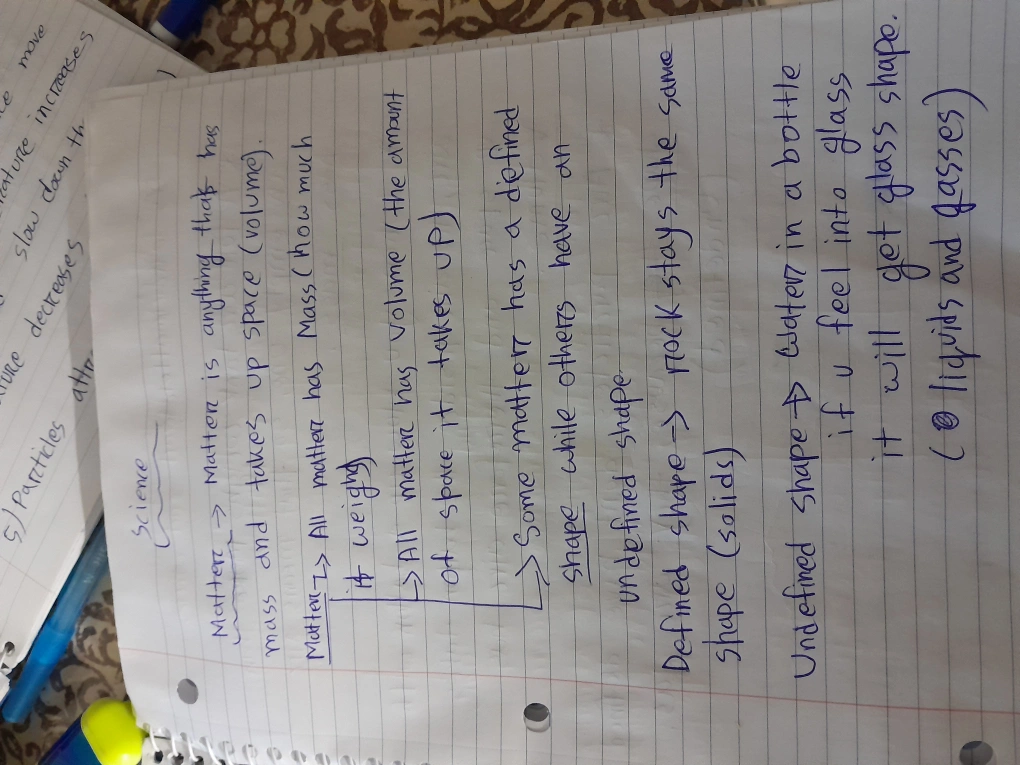 Science
Matter → Matter is anything that has
mass and takes up space (volume).
Matter → All matter has Mass (how much
it weighs)
→ All matter has volume (the amount
of space it takes up)
→ Some matter has a defined
shape while others have an
undefined shape
Defined shape → rock stays the same
shape (solids)
Undefined shape → water in a bottle
if u feel into glass
it will get glass shape.
(liquids and gasses)
move
rature increases
slow down th
ature decreases
5) Particles attr